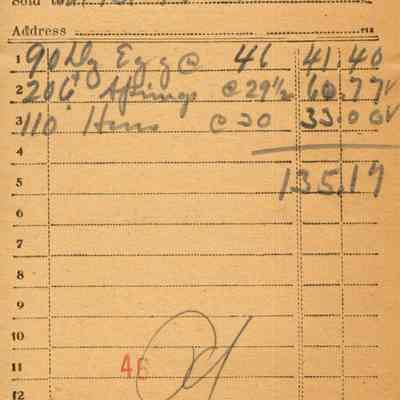 Sold to
Address
1 90 Dz Egg @ 46 41.40
2 206 Springs @ 29 1/2 60.77
3 110 Hens @ 30 33.00
4
5 135.17
6
7
8
9
10
11 46
12